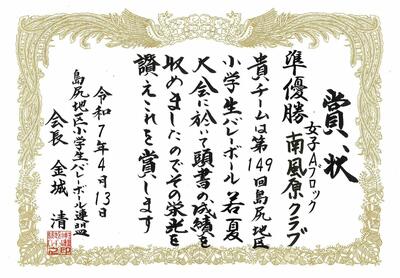 賞状
女子Aブロック
準優勝 南風原クラブ
貴チームは第149回島尻地区
小学生バレーボール若夏
大会に於いて頭書の成績を
収めましたのでその栄光を
讃えこれを賞します
令和7年4月13日
島尻地区小学生バレーボール連盟
会長 金城 清